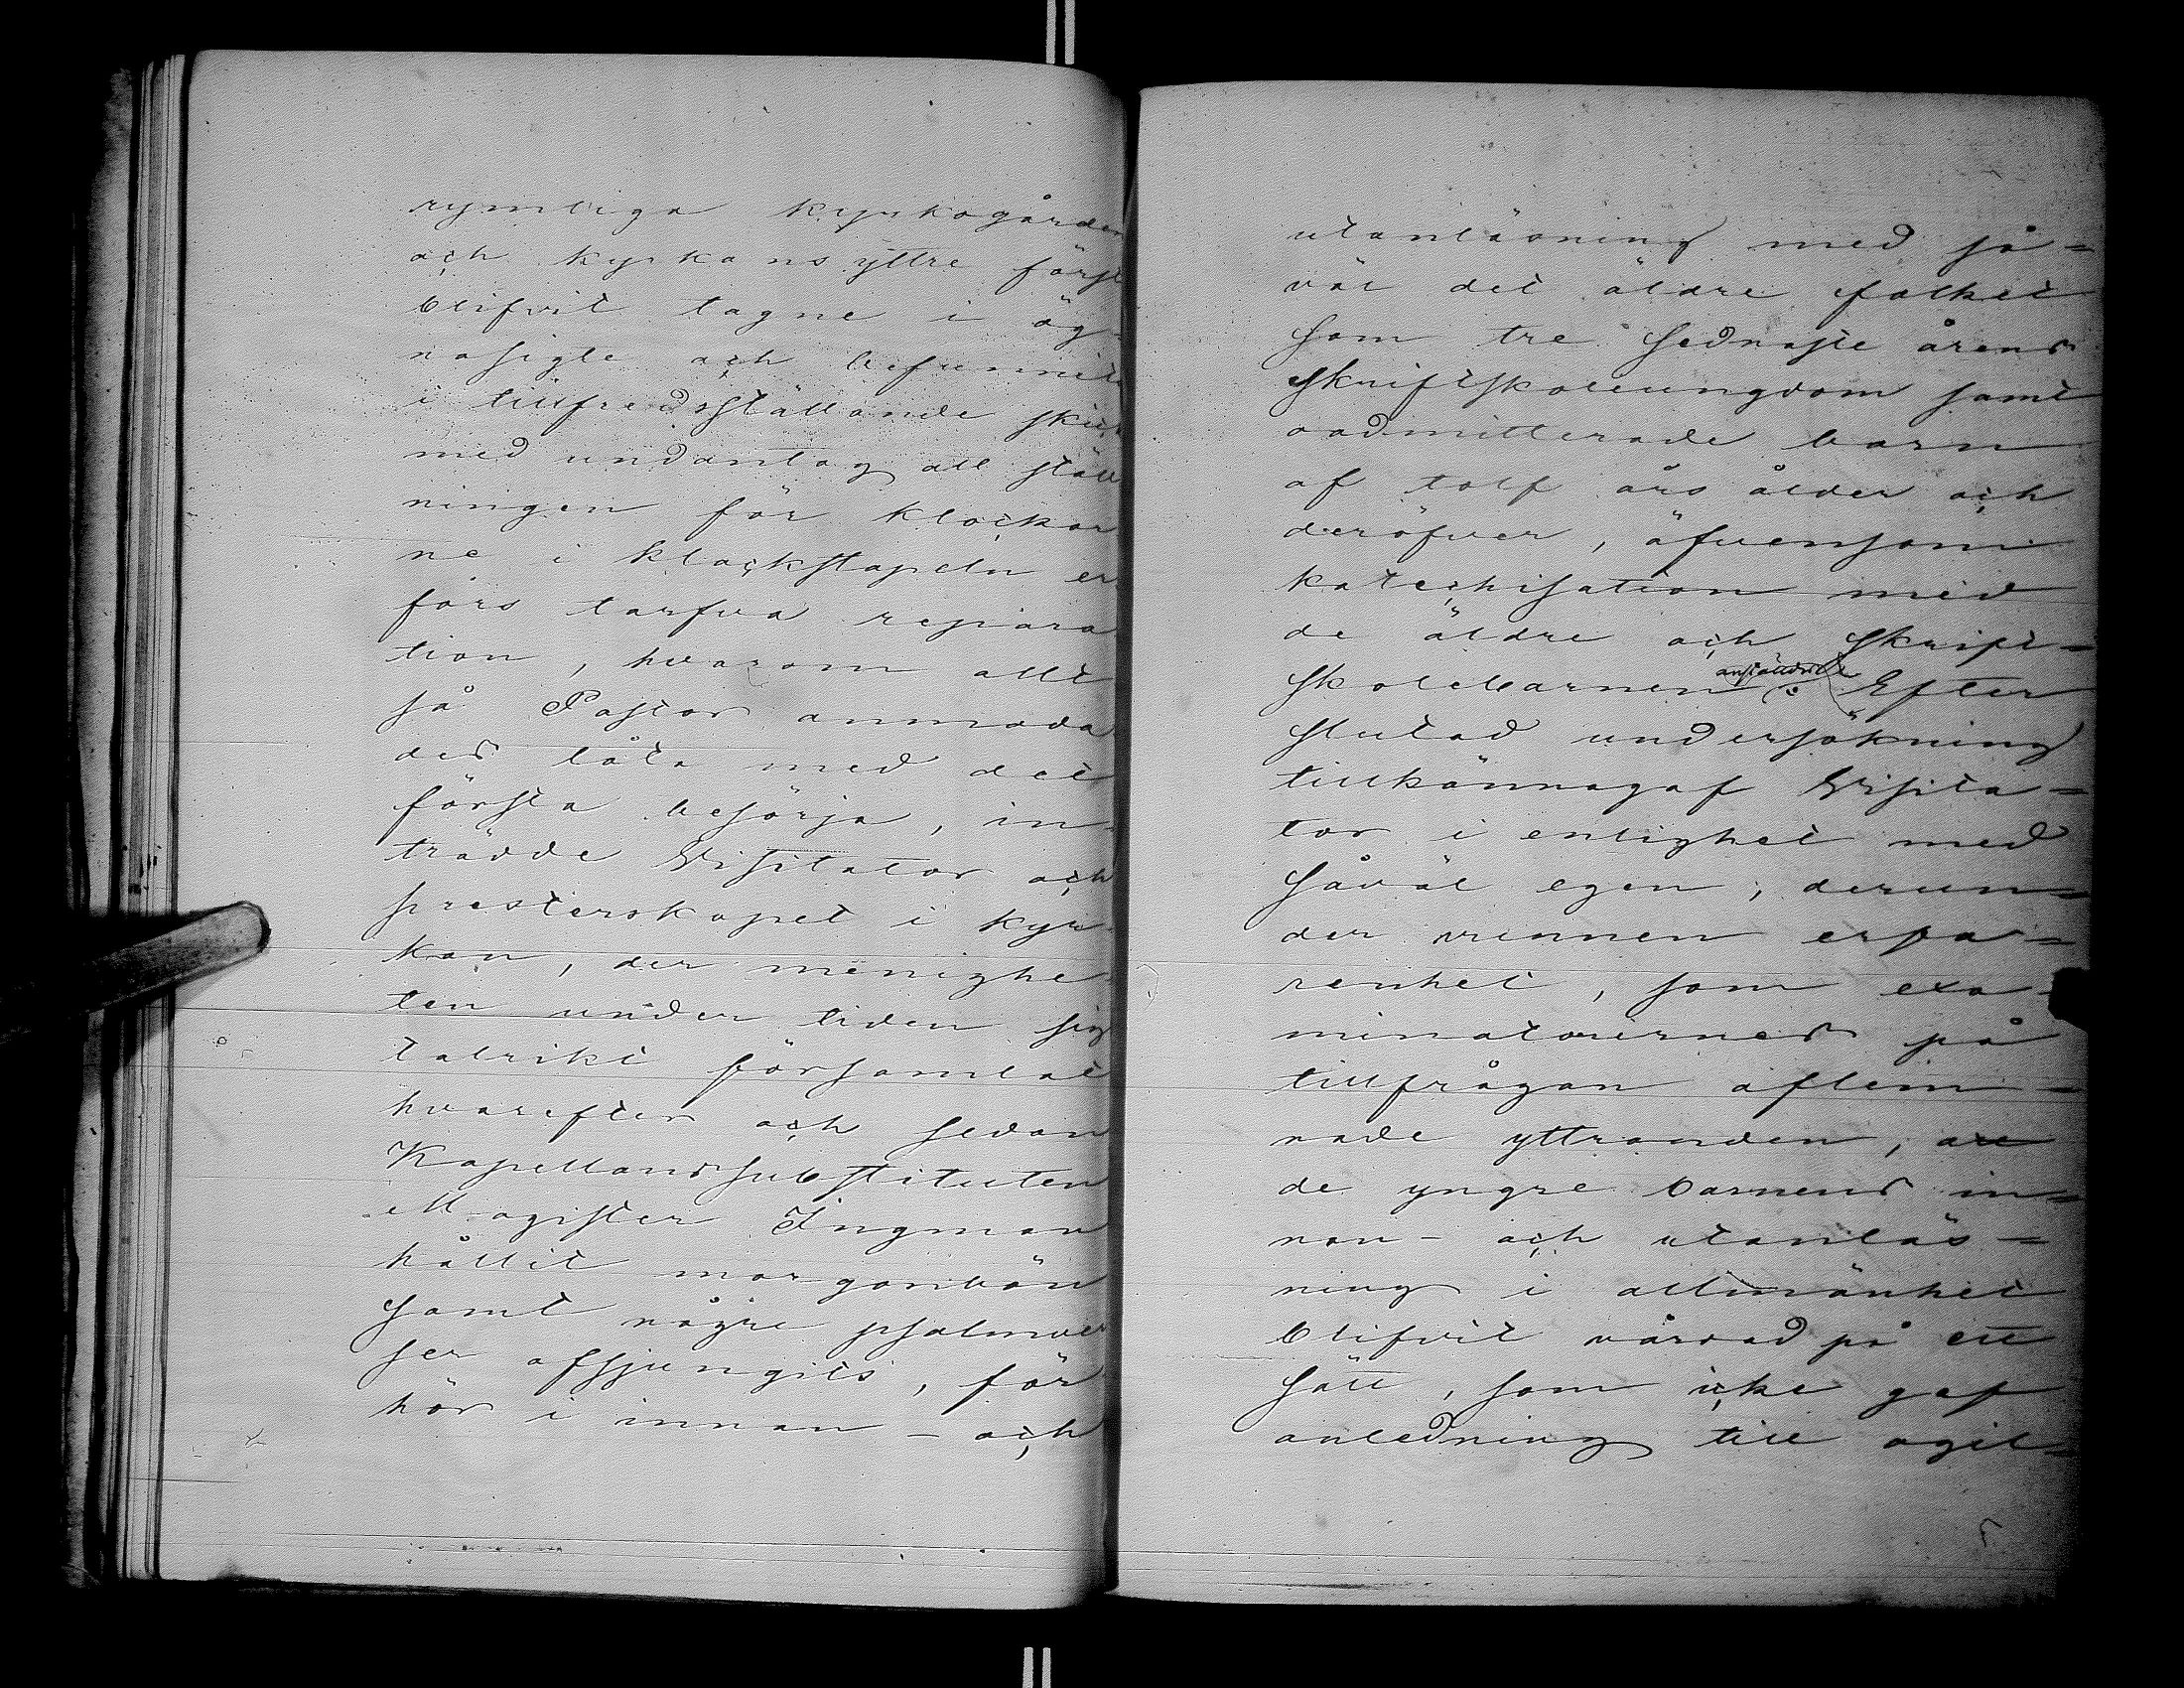 rymliga kyrkogården
och kyrkans yttre först
blifvit tagne i ög-
nasigte och befunnits
i tillfredsställande skick
med undantag att ställ
ningen för klockor
ne i klockstapeln er
fors tarfva repara
tion, hvarom allt
så Pastor anmoda
des låta med det
första besörja, in-
trädde Visitator och
presterskapet i kyr-
kan, der menighe-
ten under tiden sig
talrikt församlat
hvarefter och sedan
Kapellanssubstituten
Magister Ingman
hållit morgonbön
samt någre psalmver
ser afsjungits, för
hör i innan- och
utanläsning med så=
väl det äldre folket
som tre sednaste årens
skriftskoleungdom samt
oadmitterade barn
af tolf års ålder och
deröfver, äfvensom
katechisation med
de äldre och skrift=
skolebarnen anställdes. Efter
slutad undersökning
tillkännagaf Visita=
tor i enlighet med
såväl egen, derun=
der vunnen erfa=
renhet, som exa-
minatorernes på
tillfrågan aflem-
nade yttranden, att
de yngre barnens in=
nan- och utanläs=
ning i allmänhet
blifvit vårdad på ett
sätt, som icke gaf
anledning till ogil=